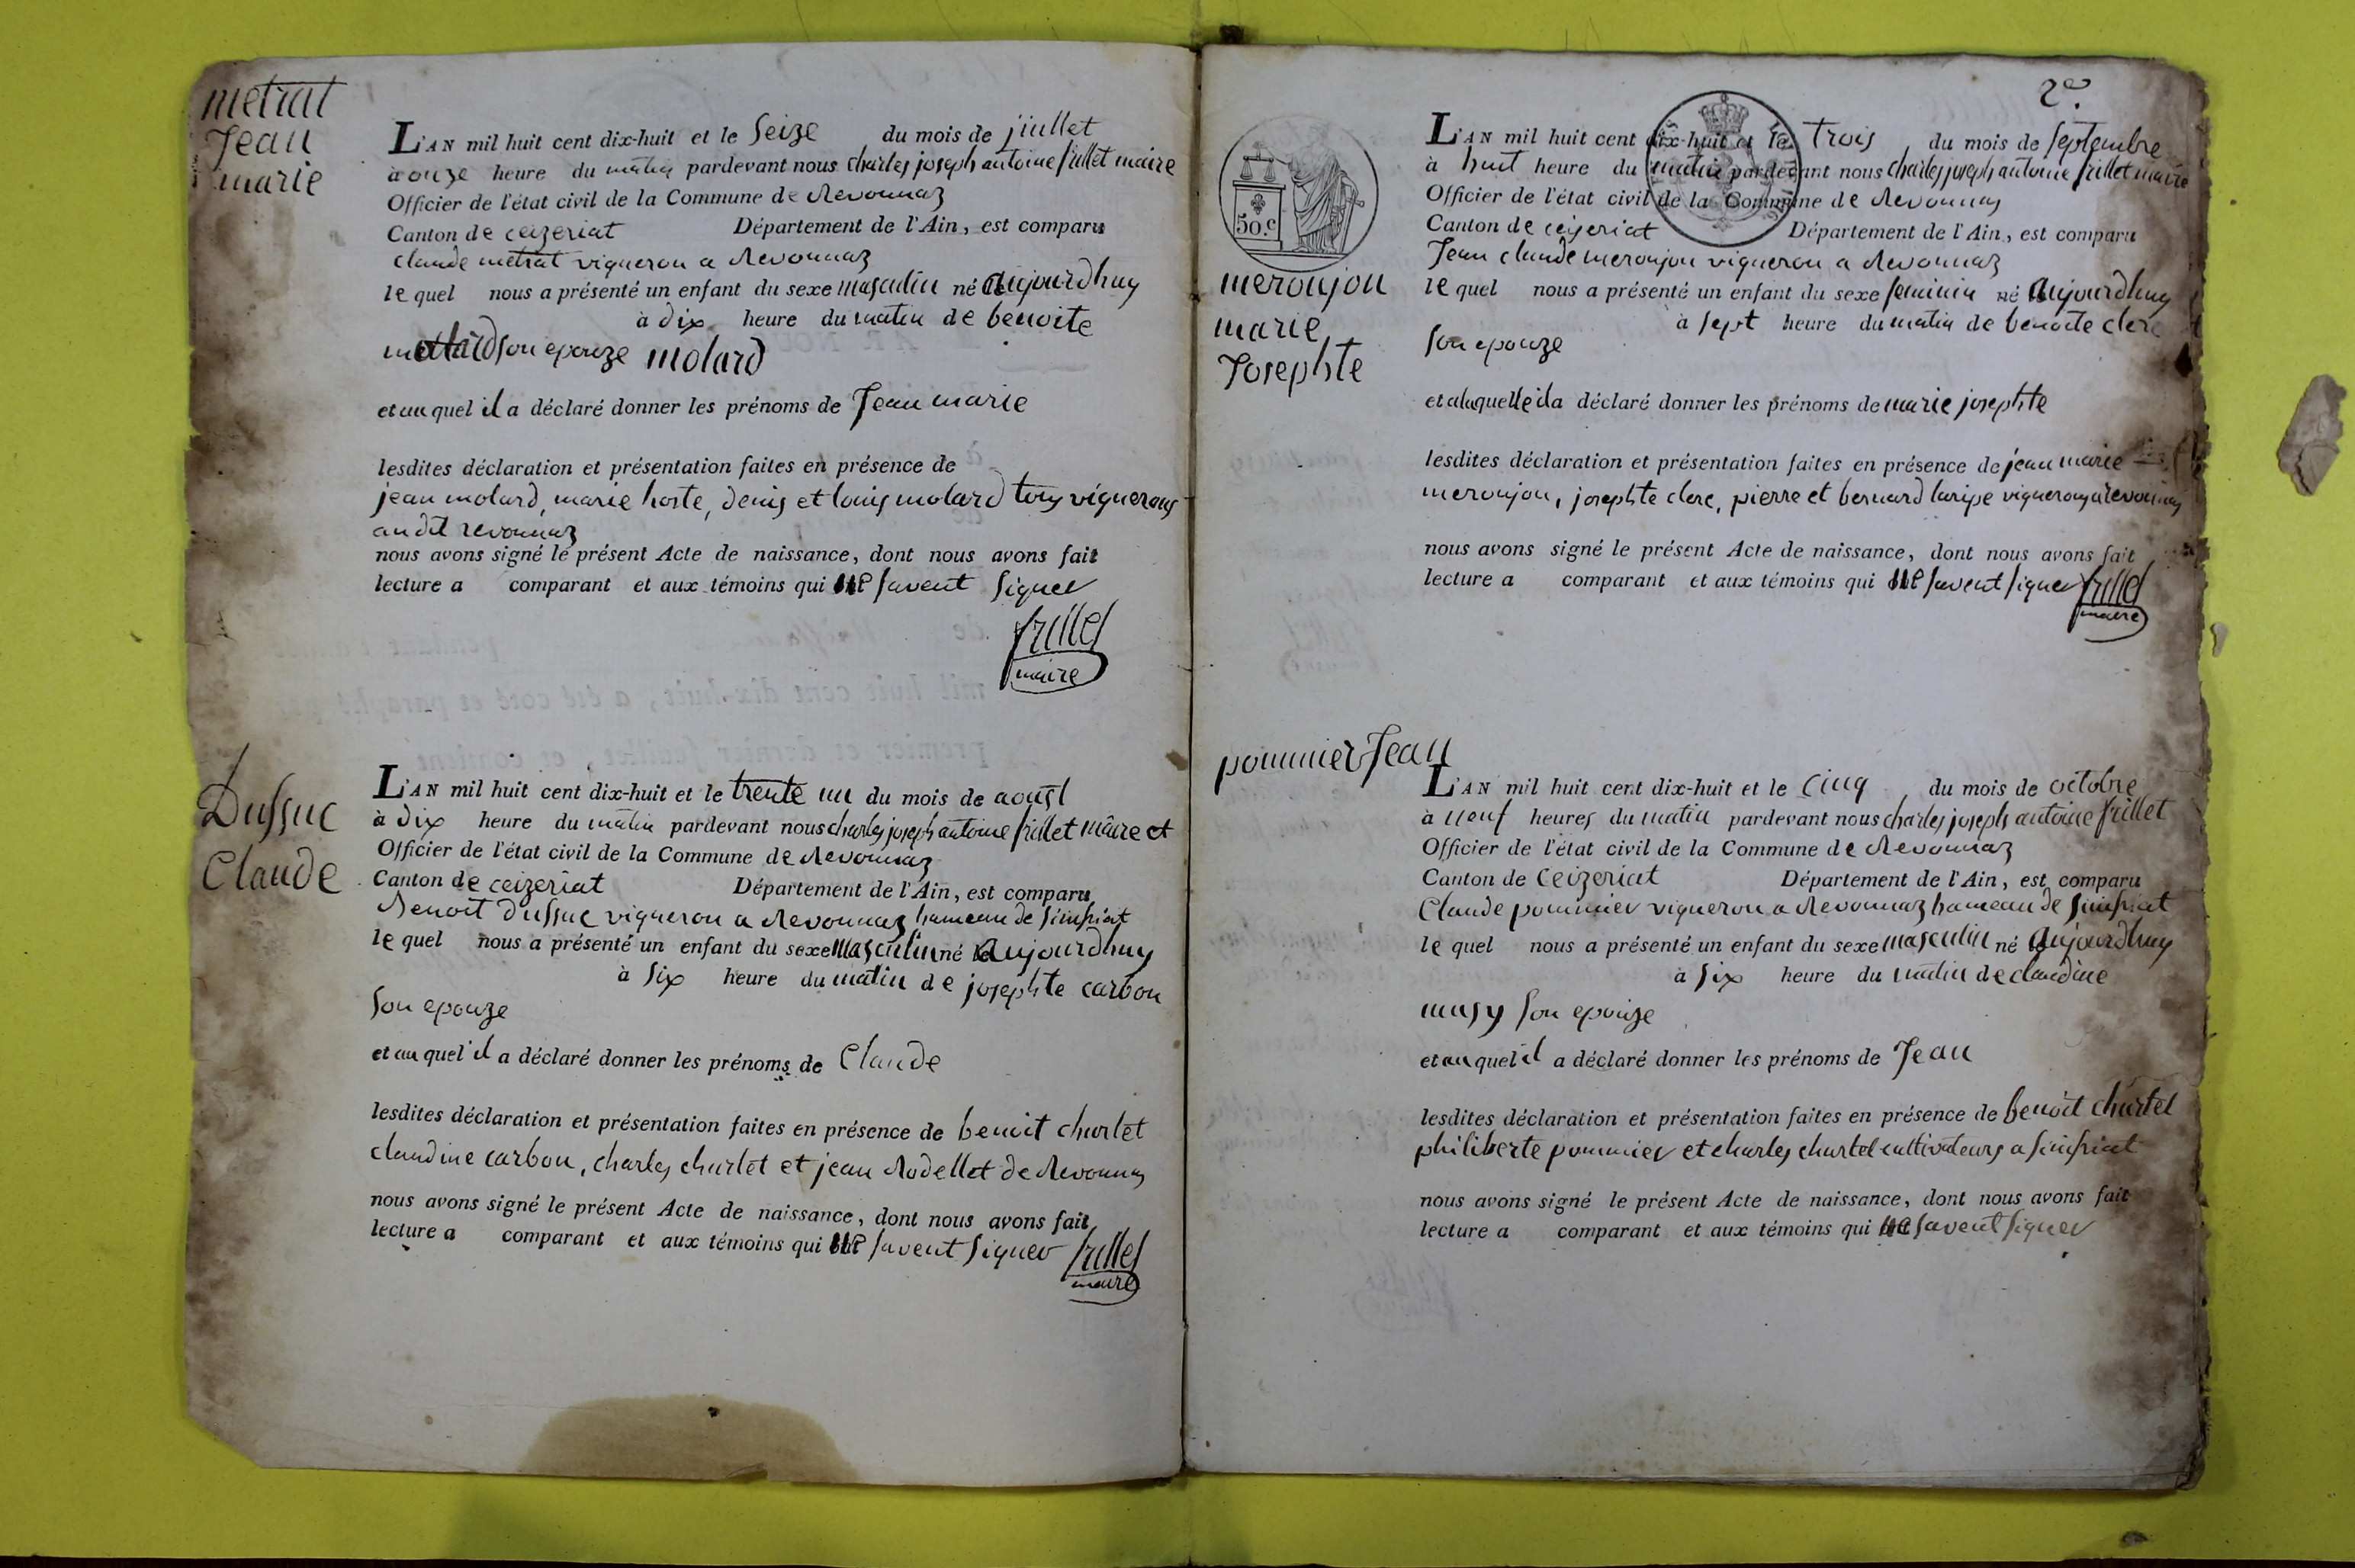 metrat
Jean
marie
L'AN mil huit cent dix-huit et le Seize du mois de juillet
à onze heure du matin pardevant nous charles joseph antoine frillet maire
Officier de l'état civil de la Commune de Revonnaz
Canton de ceizeriat Département de l'Ain, est comparu
claude metrat vigneron a Revonnaz
le quel nous a présenté un enfant du sexe masculin né aujourdhuy
à dix heure du matin de benoite
son epouze molard
et au quel il a déclaré donner les prénoms de Jean marie
lesdites déclaration et présentation faites en présence de
jean molard, marie hoste, denis et louis molard tous vignerons
au dit revonnaz
nous avons signé le présent Acte de naissance, dont nous avons fait
lecture a comparant et aux témoins qui ne savent signer
frillet
maire
Dussuc
Claude
L'AN mil huit cent dix-huit et le trente un du mois de aoust
à dix heure du matin pardevant nous charles joseph antoine frillet maire et
Officier de l'état civil de la Commune de Revonnaz
Canton de ceizeriat Département de l'Ain, est comparu
Benoit Dussuc vigneron a Revonnaz hameau de simfriat
le quel nous a présenté un enfant du sexe masculin né aujourdhuy
à six heure du matin de josephte carbon
son epouze
et au quel il a déclaré donner les prénoms de Claude
lesdites déclaration et présentation faites en présence de benoit chartet
claudine carbon, charles chartet et jean Rodellet de Revonnas
nous avons signé le présent Acte de naissance, dont nous avons fait
lecture a comparant et aux témoins qui ne savent signer frillet
maire
2e.
50.c
meronjon
marie
Josephte
L'AN mil huit cent dix-huit et le trois du mois de septembre
à huit heure du matin pardevant nous charles joseph antoine frillet maire
Officier de l'état civil de la Commune de Revonnas
Canton de ceizeriat Département de l'Ain, est comparu
Jean claude meronjon vigneron a Revonnaz
le quel nous a présenté un enfant du sexe feminin né aujourdhuy
à sept heure du matin de benoite clerc
son epouze
et a laquelle il a déclaré donner les prénoms de marie josephte
lesdites déclaration et présentation faites en présence de jean marie
meronjon, josephte clerc, pierre et bernard laripe vignerons a revonnas
nous avons signé le présent Acte de naissance, dont nous avons fait
lecture a comparant et aux témoins qui ne savent signer frillet
maire
pommier Jean
L'AN mil huit cent dix-huit et le cinq du mois de octobre
à neuf heures du matin pardevant nous charles joseph antoine frillet
Officier de l'état civil de la Commune de Revonnaz
Canton de Ceizeriat Département de l'Ain, est comparu
Claude pommier vigneron a Revonnaz hameau de simfriat
le quel nous a présenté un enfant du sexe masculin né aujourdhuy
à six heure du matin de claudine
musy son epouze
et au quel il a déclaré donner les prénoms de Jean
lesdites déclaration et présentation faites en présence de benoit chartet
philiberte pommier et charles chartet cultivateurs a simfriat
nous avons signé le présent Acte de naissance, dont nous avons fait
lecture a comparant et aux témoins qui ne savent signer